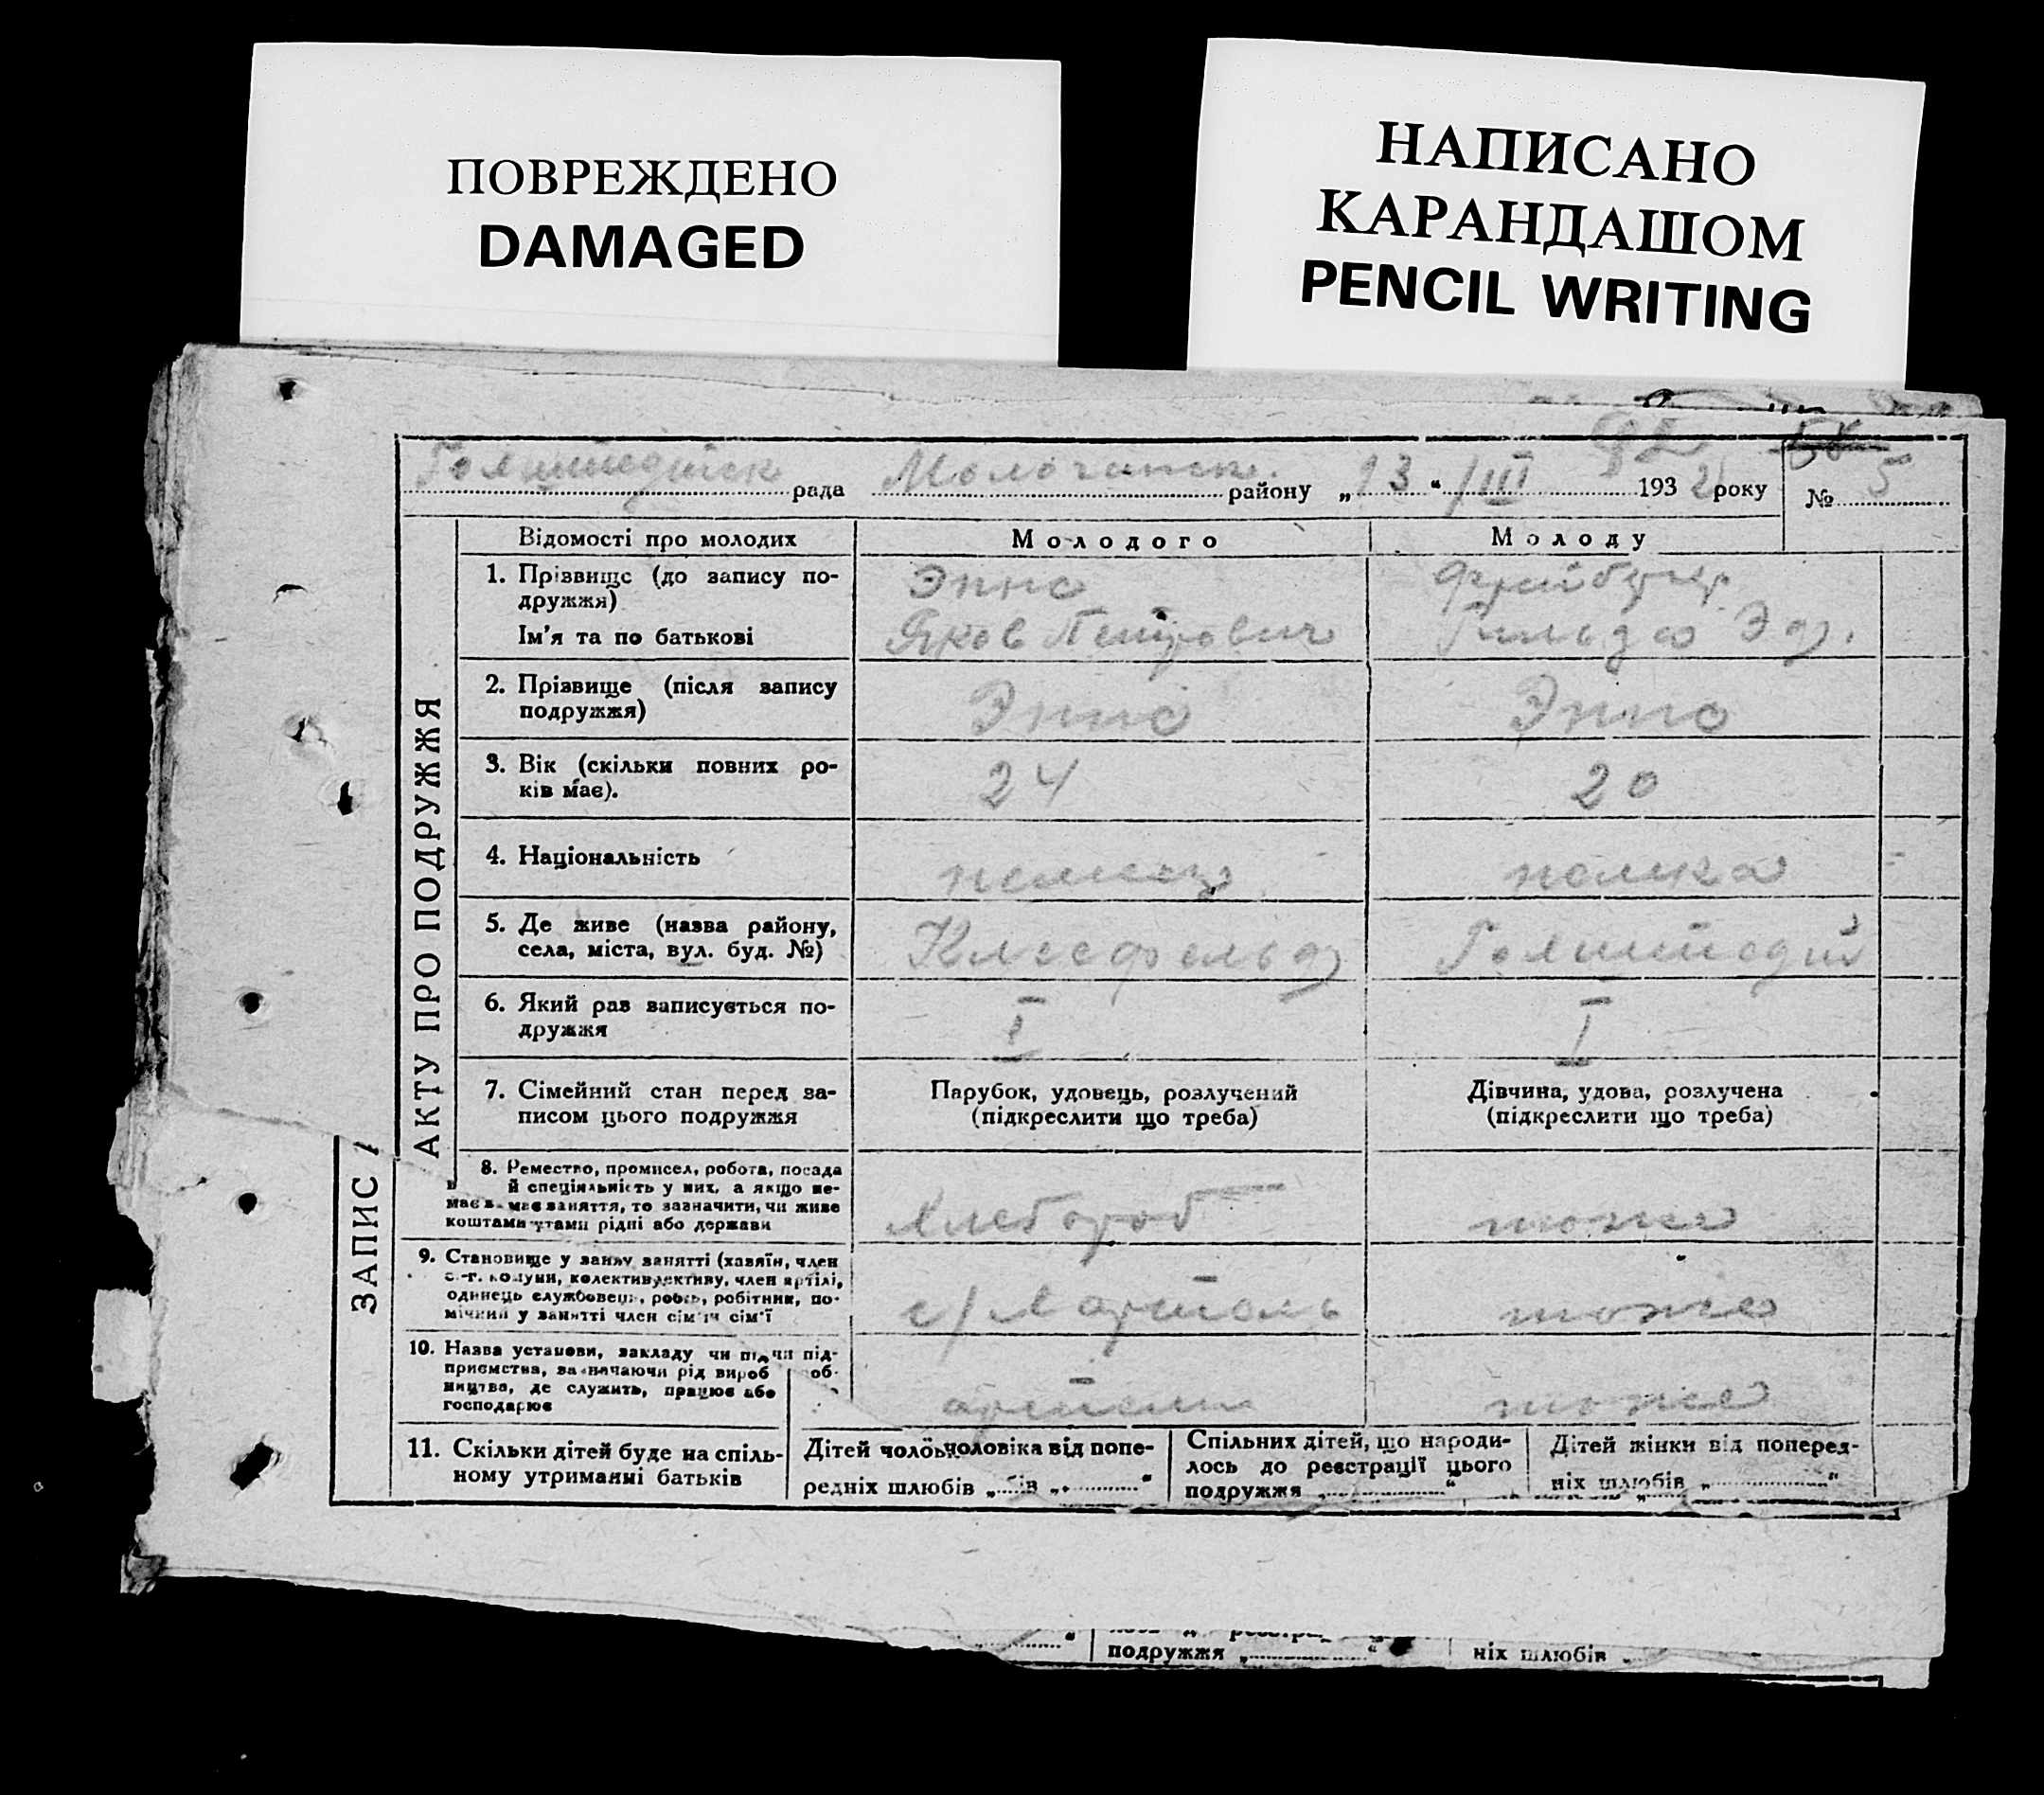 ПОВРЕЖДЕНО
DAMAGED
НАПИСАНО
КАРАНДАШОМ
PENCIL WRITING
рада Молочанск. району „13“ /III 1932 року
№ 5
ЗАПИС АКТУ ПРО ПОДРУЖЖЯ
Відомості про молодих
Молодого
Молоду
1. Прізвище (до запису по-
дружжя)
Ім'я та по батькові
Эппс
Яков Петрович
Гильда Эд.
2. Прізвище (після запису
подружжя)
Эппс
Эппс
3. Вік (скільки повних ро-
ків має).
24
20
4. Національність
немец
немка
5. Де живе (назва району,
села, міста, вул. буд. №)
Клеефельд
6. Який раз записується по-
дружжя
I
I
7. Сімейний стан перед за-
писом цього подружжя
Парубок, удовець, розлучений
(підкреслити що треба)
Дівчина, удова, розлучена
(підкреслити що треба)
8. Ремество, промисел, робота, посада
й спеціяльність у них, а якщо не-
має заняття, то зазначити, чи живе
коштами рідні або держави
Хлебороб
тоже
9. Становище у занятті (хазяїн, член
с.-г. комуни, колективу, член артілі,
одинець службовець, робітник, по-
мічний у занятті член сім'ї
с/х артель
тоже
10. Назва установи, закладу чи під-
приємства, зазначаючи рід вироб
ництва, де служить, працює або
господарює
артели
тоже
11. Скільки дітей буде на спіль-
ному утриманні батьків
Дітей чоловіка від попе-
редніх шлюбів „ “
Спільних дітей, що народи-
лось до реєстрації цього
подружжя „ “
Дітей жінки від поперед-
ніх шлюбів „ “
подружжя „ “
ніх шлюбів „